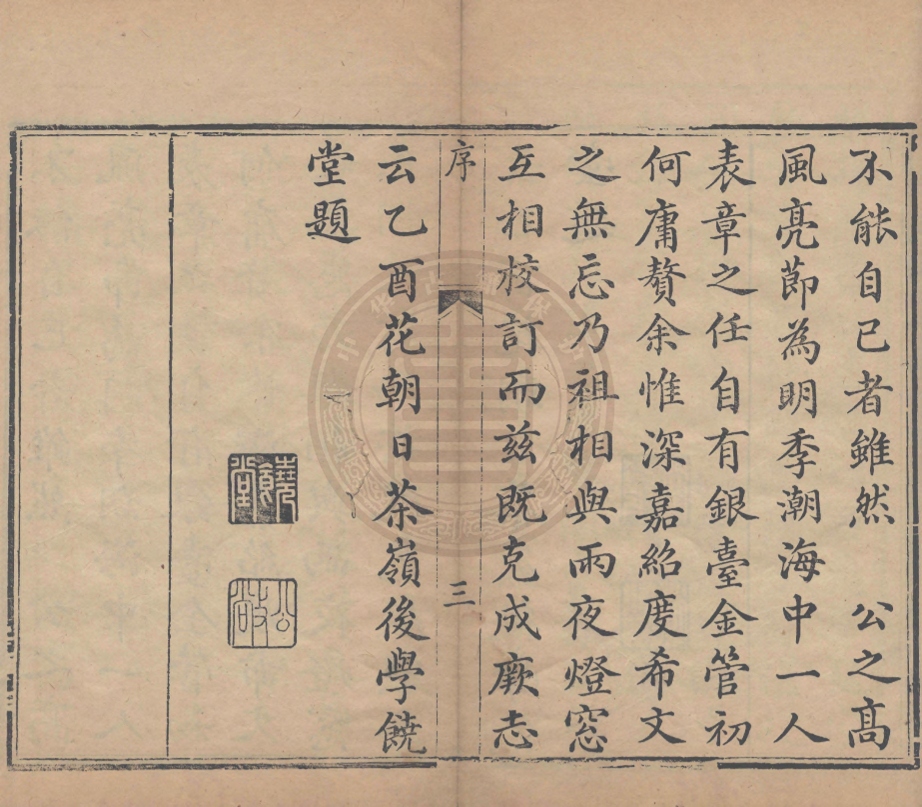 不能自已者雖然　公之高
風亮節為明季潮海中一人
表章之任自有銀臺金管初
何庸贅余惟深嘉紹度希文
之無忘乃祖相與雨夜燈窓
互相校訂而茲既克成厥志
序
三
云乙酉花朝日茶嶺後學饒
堂題
饒堂